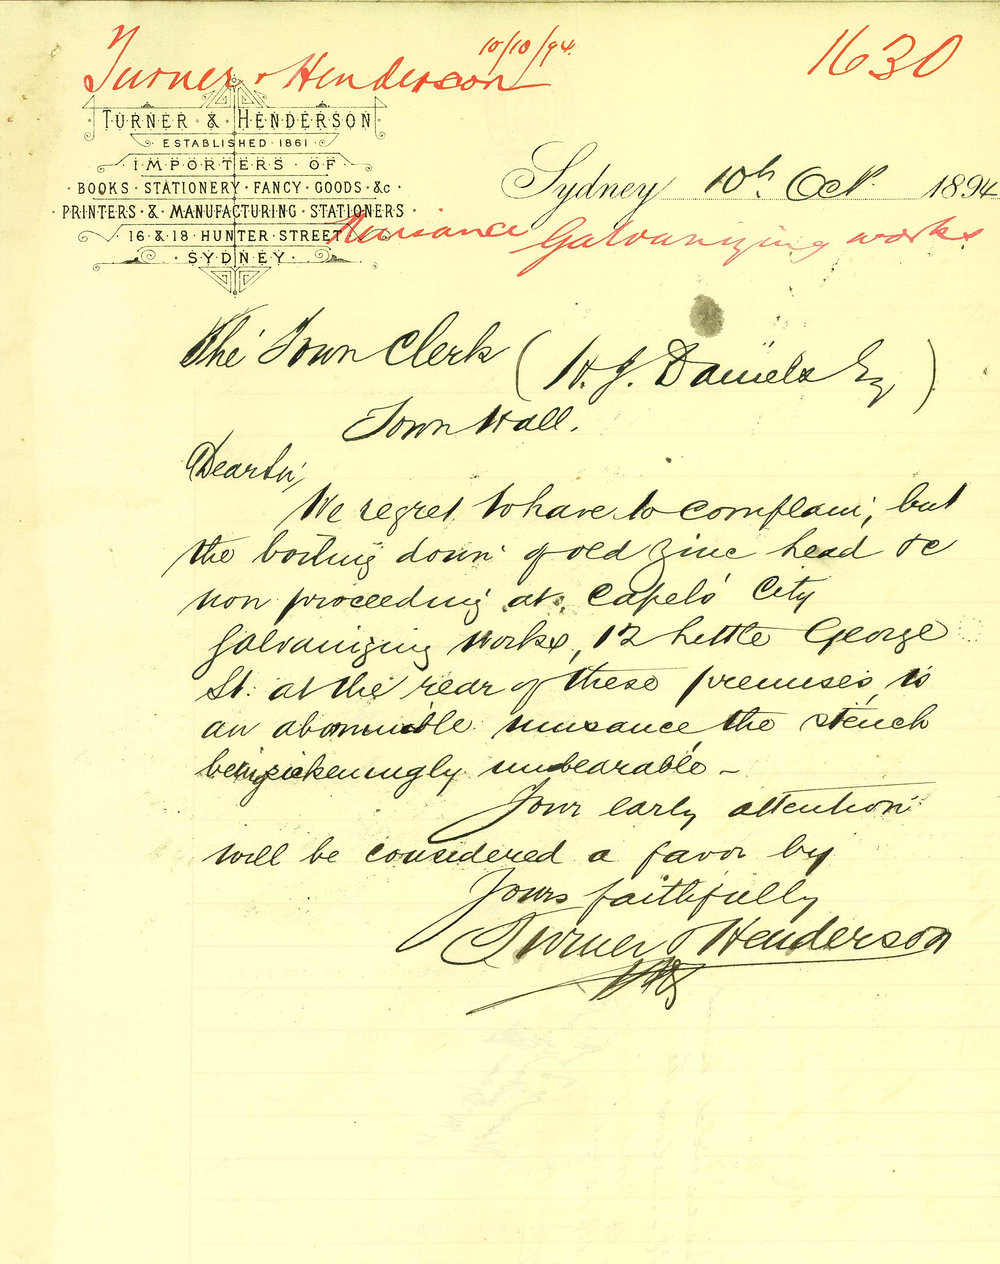 10/10/94.
Turner & Henderson
1630
TURNER & HENDERSON
ESTABLISHED 1861
IMPORTERS OF
BOOKS · STATIONERY · FANCY · GOODS · &c
PRINTERS · & · MANUFACTURING · STATIONERS
16 & 18 HUNTER STREET
SYDNEY
Sydney 10th Oct. 1894
Nuisance Galvanizing works.
The Town Clerk (H. J. Daniels Esq)
Town Hall.
Dear Sir,
We regret to have to complain, but
the boiling down of old zinc head &c
now proceeding at Capel's City
Galvanizing Works, 12 Little George
St. at the rear of these premises, is
an abominable nuisance the stench
being sickeningly unbearable –
Your early attention
will be considered a favor by
Yours faithfully
Turner & Henderson